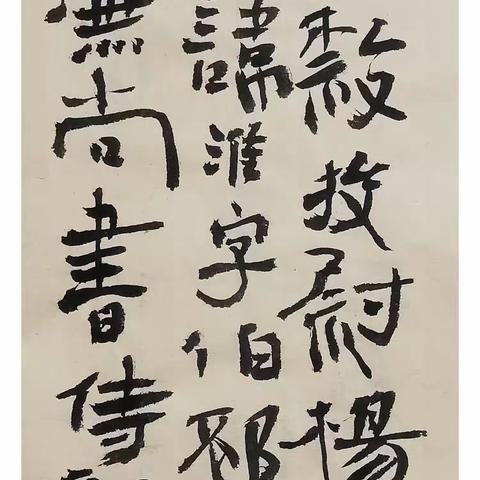 隸校尉楊
諱淮字伯邳
廉尚書侍